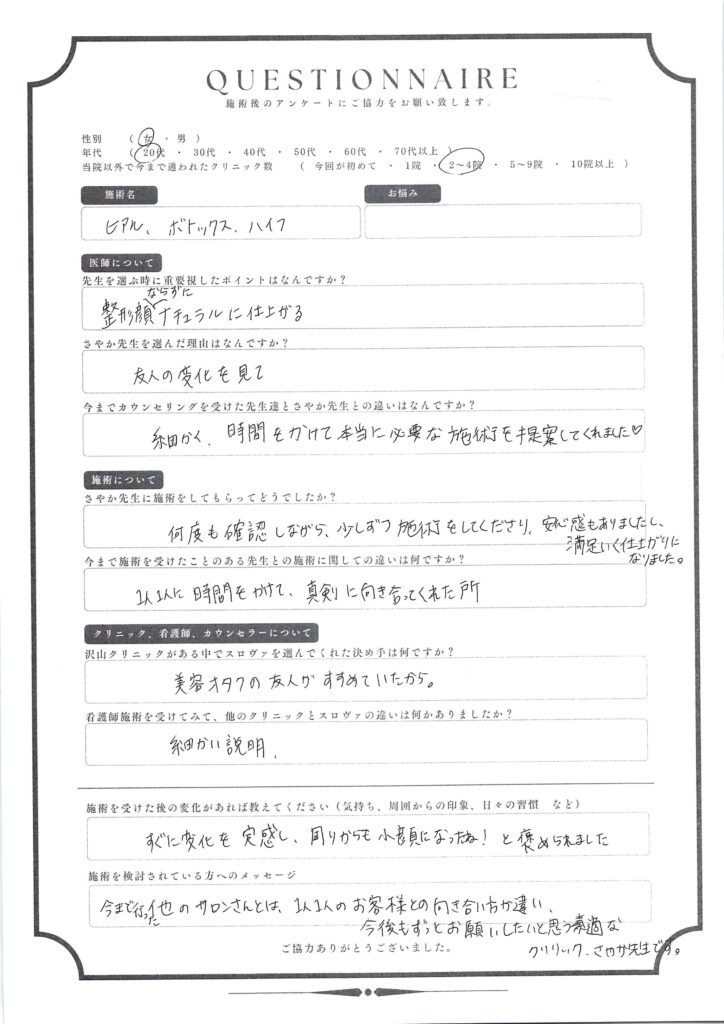 QUESTIONNAIRE
施術後のアンケートにご協力をお願い致します。
性別 ( 女 ・ 男 )
年代 ( 20代 ・ 30代 ・ 40代 ・ 50代 ・ 60代 ・ 70代以上 )
当院以外で今まで通われたクリニック数 ( 今回が初めて ・ 1院 ・ 2〜4院 ・ 5〜9院 ・ 10院以上 )
施術名 お悩み
ヒアル、ボトックス、ハイフ
医師について
先生を選ぶ時に重要視したポイントはなんですか?
整形顔ならずにナチュラルに仕上がる
さやか先生を選んだ理由はなんですか?
友人の変化を見て
今までカウンセリングを受けた先生達とさやか先生との違いはなんですか?
細かく、時間をかけて本当に必要な施術を提案してくれました♡
施術について
さやか先生に施術をしてもらってどうでしたか?
何度も確認しながら、少しずつ施術をしてくださり、安心感もありましたし、
満足いく仕上がりに
なりました。
今まで施術を受けたことのある先生との施術に関しての違いは何ですか?
1人1人に時間をかけて、真剣に向き合ってくれた所
クリニック、看護師、カウンセラーについて
沢山クリニックがある中でスロヴァを選んでくれた決め手は何ですか?
美容オタクの友人がすすめていたから。
看護師施術を受けてみて、他のクリニックとスロヴァの違いは何かありましたか?
細かい説明、
施術を受けた後の変化があれば教えてください(気持ち、周囲からの印象、日々の習慣 など)
すぐに変化を実感し、周りからも小顔になったね!と褒められました
施術を検討されている方へのメッセージ
今まで行った他のサロンさんとは、1人1人のお客様との向き合い方が違い、
今後もずっとお願いしたいと思う素適な
クリニック、さやか先生です。
ご協力ありがとうございました。